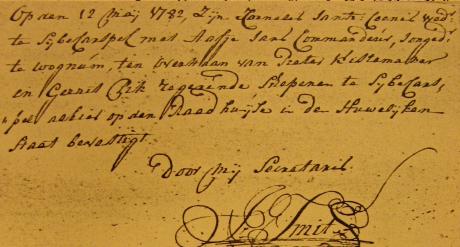 Op den 12 Meij 1782, Zijn Cornelis Jantz: Com̃el wedr.
te Sijbecarspel met Aafje Jans Commandeus, Jonged.
te wognum, ten overstaan van Pieter Kistemaker
en Gerrit Bik regerende Schepenen te Sijbecars,
"pel alhier op den Raadhuijse in de Huwelijken
Staat bevestigt.
Door Mij Secretaris.
Smit